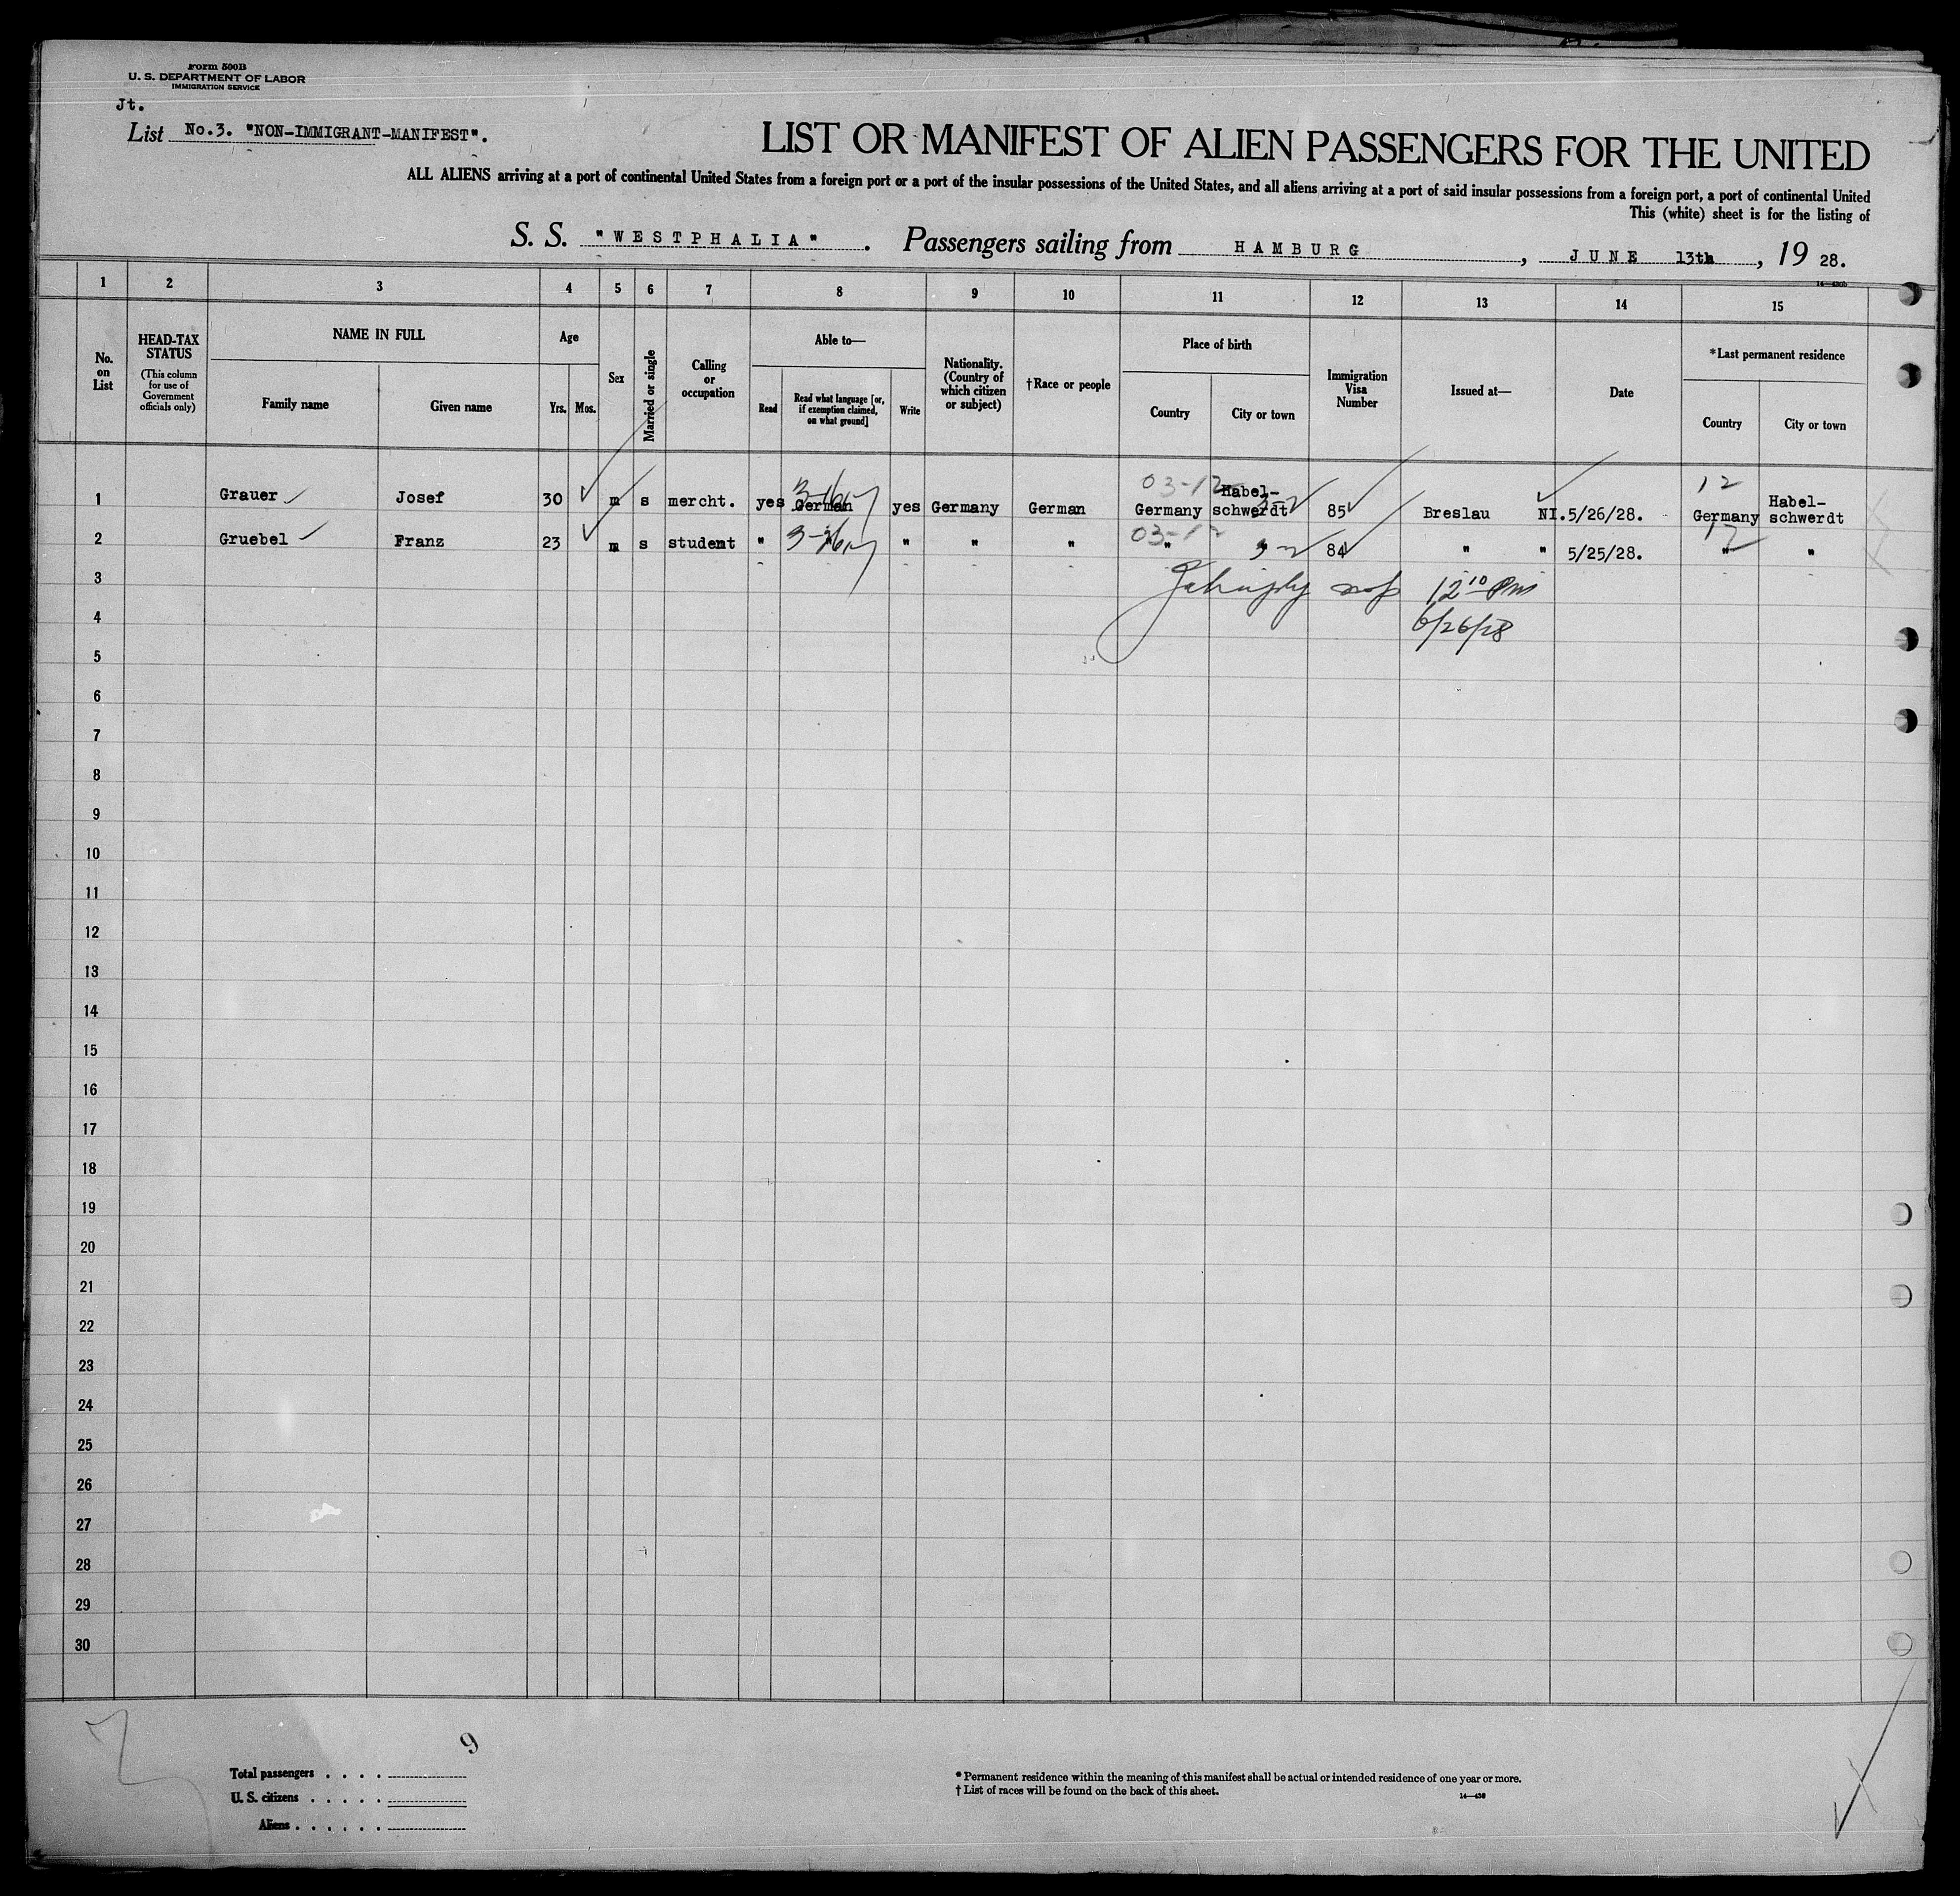 Form 500B
U. S. DEPARTMENT OF LABOR
IMMIGRATION SERVICE
Jt.
List No.3. "NON-IMMIGRANT-MANIFEST".
LIST OR MANIFEST OF ALIEN PASSENGERS FOR THE UNITED
ALL ALIENS arriving at a port of continental United States from a foreign port or a port of the insular possessions of the United States, and all aliens arriving at a port of said insular possessions from a foreign port, a port of continental United
This (white) sheet is for the listing of
S. S. "WESTPHALIA". Passengers sailing from HAMBURG, JUNE 13th, 19 28.
1 2 3 4 5 6 7 8 9 10 11 12 13 14 15
No. on List
HEAD-TAX STATUS
(This column for use of Government officials only)
NAME IN FULL
Family name Given name
Age
Yrs. Mos.
Sex
Married or single
Calling or occupation
Able to—
Read
Read what language [or, if exemption claimed, on what ground]
Write
Nationality. (Country of which citizen or subject)
†Race or people
Place of birth
Country City or town
Immigration Visa Number
Issued at—
Date
*Last permanent residence
Country City or town
03-12 12
1 Grauer Josef 30 m s mercht. yes German yes Germany German Germany Habel-schwerdt 85 Breslau NI. 5/26/28. Germany Habel-schwerdt
03-12 12
2 Gruebel Franz 23 m s student " " " " " " 84 " " 5/25/28. " "
3 12 10 Pm
4 6/26/28
5
6
7
8
9
10
11
12
13
14
15
16
17
18
19
20
21
22
23
24
25
26
27
28
29
30
9
Total passengers . . . .
U. S. citizens . . . . .
Aliens . . . . . .
* Permanent residence within the meaning of this manifest shall be actual or intended residence of one year or more.
† List of races will be found on the back of this sheet.
14—430